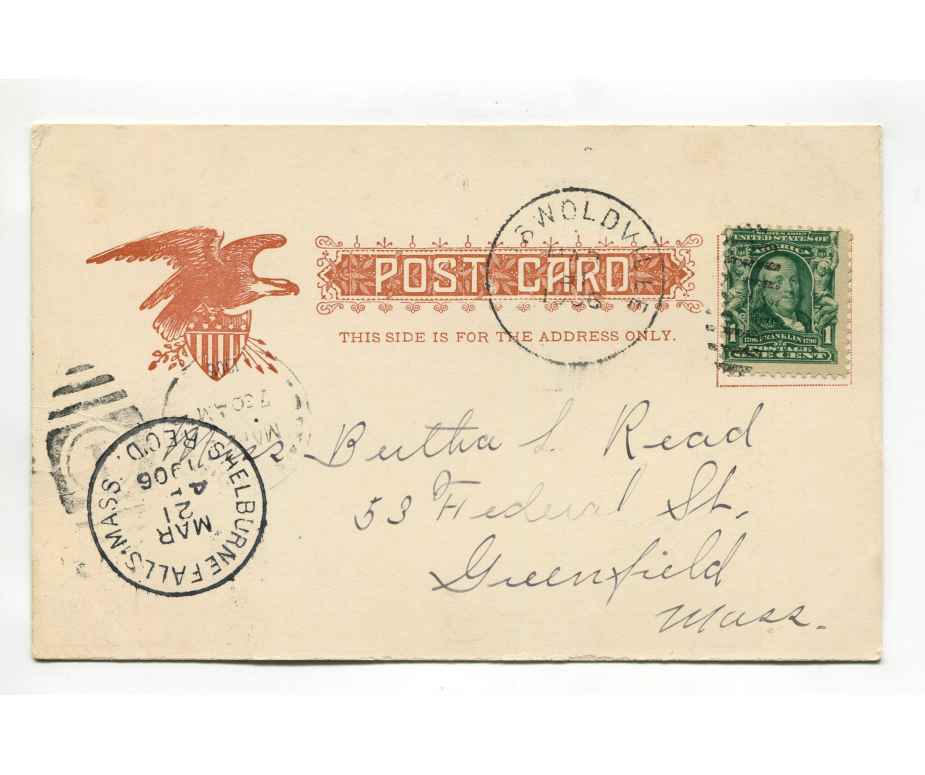 POST CARD
THIS SIDE IS FOR THE ADDRESS ONLY.
UNITED STATES OF
AMERICA
FRANKLIN
POSTAGE
ONE CENT
1 1
1906
7 30 AM
MAR
SHELBURNE FALLS. MASS.
REC'D.
MAR
21
1906
Miss Bertha L. Read
53 Federal St.
Greenfield
Mass.